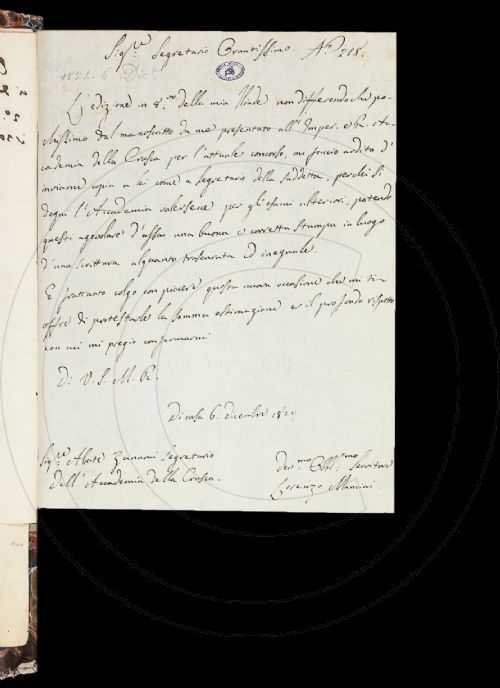 Sig.re Segretario Ornatissimo. N.o 518.
1821. 6. Dic.
L'edizione in 8.vo della mia Iliade non differendo che po-
chissimo dal manoscritto da me presentato all' Imper. e R. Ac-
cademia della Crusca per l'attuale concorso, mi faccio ardito d'
inviarne copia a lei come a segretario della suddetta, perchè si
degni l'Accademia valersene per gli esami ulteriori, potendo
questi agevolare d'assai una buona e corretta stampa in luogo
d'una scrittura alquanto trascurata ed ineguale.
E frattanto colgo con piacere questa nuova occasione che mi si
offre di protestarle la somma estimazione e il profondo rispetto
con cui mi pregio confermarmi
Di V. S. M. R.
Di casa 6. dicembre 1821
Sig.re Abate Zannoni Segretario
dell'Accademia della Crusca.
Dev.mo Obbl.mo Servitore
Lorenzo Mancini.